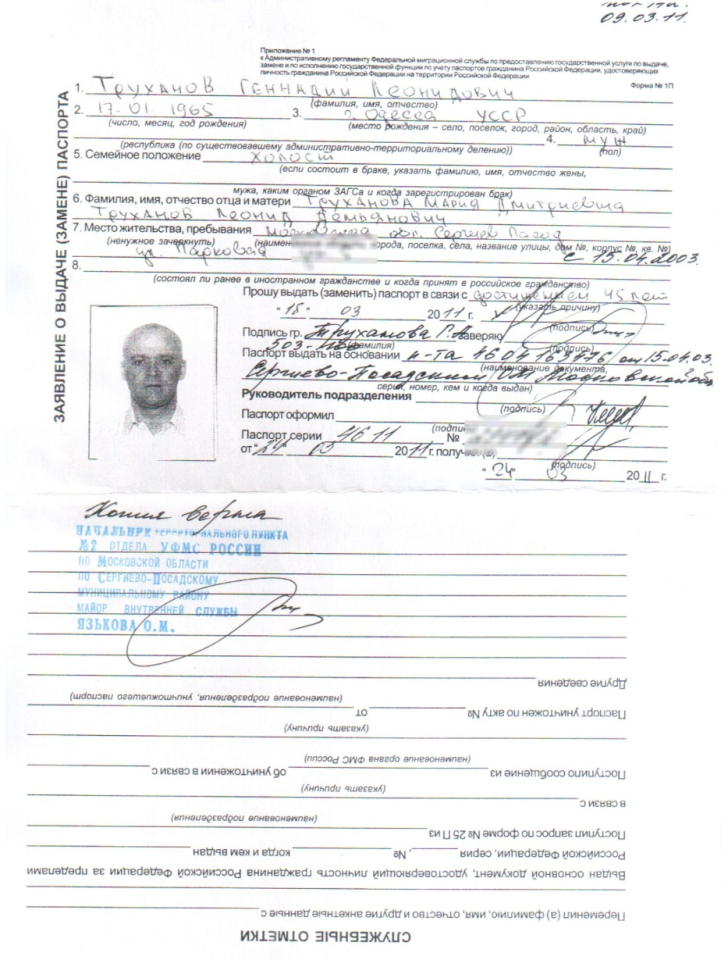 09.03.11.
Приложение № 1
к Административному регламенту Федеральной миграционной службы по предоставлению государственной услуги по выдаче,
замене и по исполнению государственной функции по учету паспортов гражданина Российской Федерации, удостоверяющих
личность гражданина Российской Федерации на территории Российской Федерации
Форма № 1П
ЗАЯВЛЕНИЕ О ВЫДАЧЕ (ЗАМЕНЕ) ПАСПОРТА
1. Труханов Геннадий Леонидович
(фамилия, имя, отчество)
2. 17.01.1965 3. г. Одесса УССР
(число, месяц, год рождения) (место рождения – село, поселок, город, район, область, край)
4. муж
(республика (по существовавшему административно-территориальному делению)) (пол)
5. Семейное положение холост
(если состоит в браке, указать фамилию, имя, отчество жены,
мужа, каким органом ЗАГСа и когда зарегистрирован брак)
6. Фамилия, имя, отчество отца и матери Труханова Мария Дмитриевна
Труханов Леонид Демьянович
7. Место жительства, пребывания Московская обл. Сергиев Посад
(ненужное зачеркнуть) города, поселка, села, название улицы, дом №, корпус №, кв. №)
ул. Парковая с 15.04.2003.
8.
(состоял ли ранее в иностранном гражданстве и когда принят в российское гражданство)
Прошу выдать (заменить) паспорт в связи с достижением 45 лет
(указать причину)
"18" 03 2011 г.
(подпись)
Подпись гр. Труханова Г.Л. заверяю
(фамилия) (подпись)
Паспорт выдать на основании п-та 46 04 от 15.04.03
(наименование документа,
Сергиево-Посадским ОМ Московской обл
серия, номер, кем и когда выдан)
Руководитель подразделения
(подпись)
Паспорт оформил
(подпись)
Паспорт серии 46 11 №
от "24" 03 2011 г. получил(а)
(подпись)
"24" 03 2011 г.
Копия верна
НАЧАЛЬНИК ТЕРРИТОРИАЛЬНОГО ПУНКТА
№2 ОТДЕЛА УФМС РОССИИ
ПО МОСКОВСКОЙ ОБЛАСТИ
ПО СЕРГИЕВО-ПОСАДСКОМУ
МУНИЦИПАЛЬНОМУ РАЙОНУ
МАЙОР ВНУТРЕННЕЙ СЛУЖБЫ
ЯЗЬКОВА О.М.
СЛУЖЕБНЫЕ ОТМЕТКИ
Переменил (а) фамилию, имя, отчество и другие анкетные данные с
Выдан основной документ, удостоверяющий личность гражданина Российской Федерации за пределами
Российской Федерации, серия , № когда и кем выдан
Поступил запрос по форме № 25 П из
(наименование подразделения)
в связи с
(указать причину)
Поступило сообщение из об уничтожении в связи с
(наименование органа ФМС России)
(указать причину)
Паспорт уничтожен по акту № от
(наименование подразделения, уничтожившего паспорт)
Другие сведения